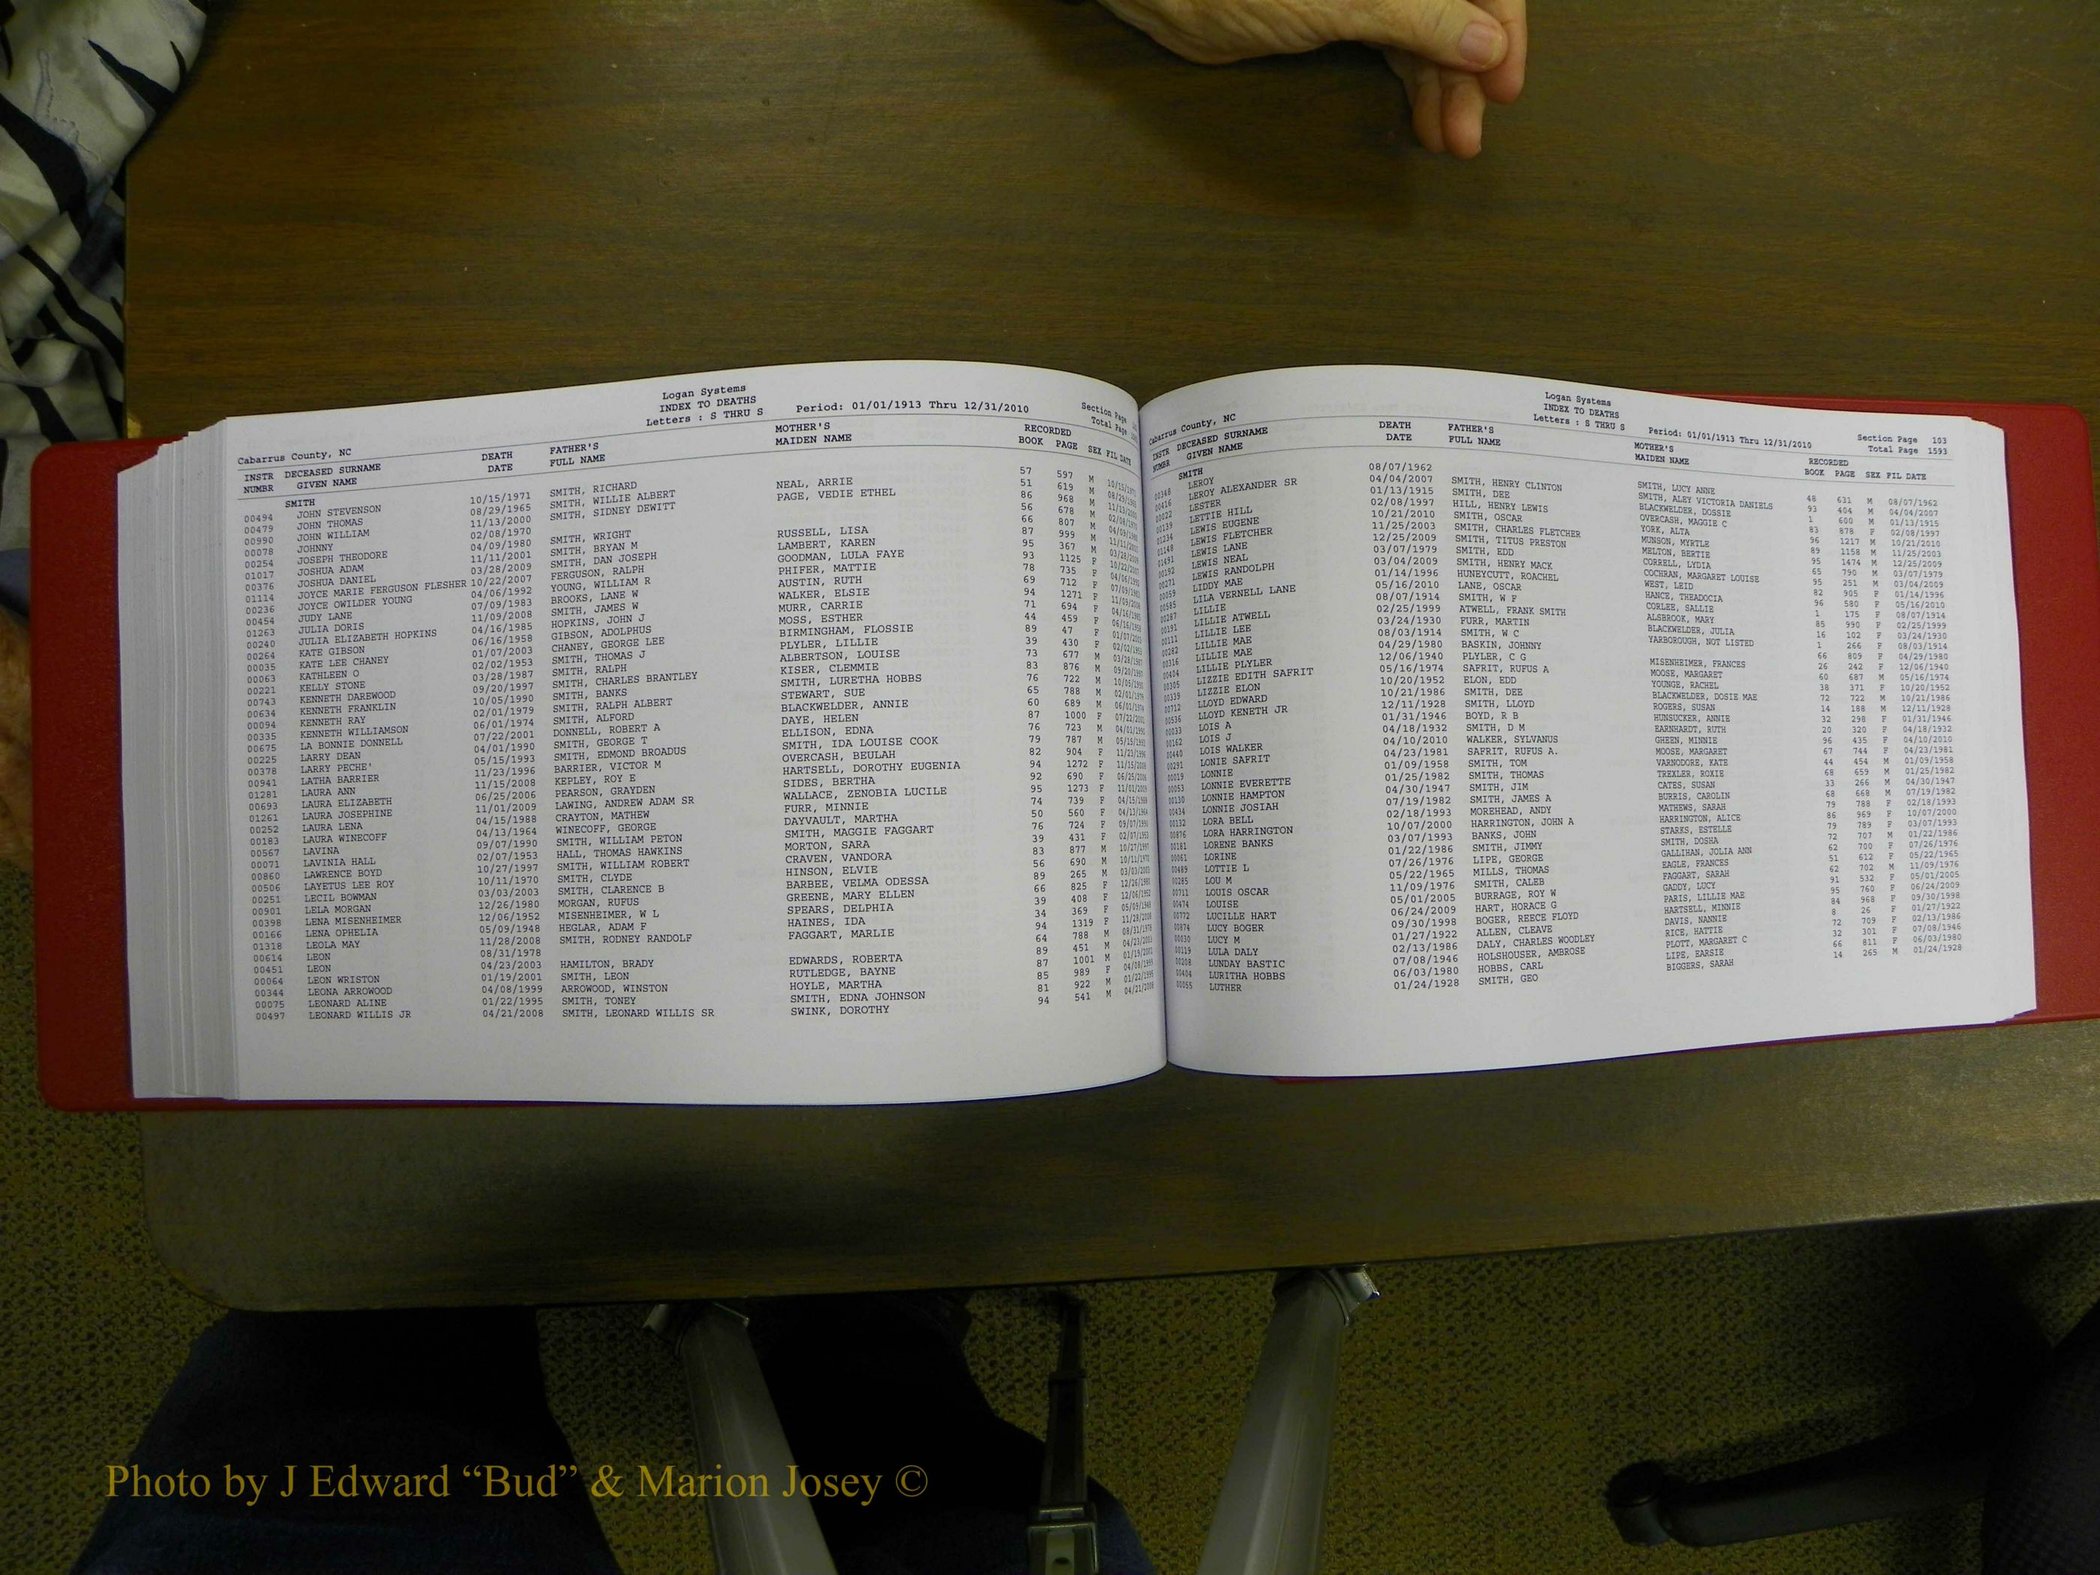 Logan Systems
INDEX TO DEATHS
Letters : S THRU S Period: 01/01/1913 Thru 12/31/2010 Section Page
Total Page
Cabarrus County, NC
INSTR NUMBR DECEASED SURNAME GIVEN NAME DEATH DATE FATHER'S FULL NAME MOTHER'S MAIDEN NAME RECORDED BOOK PAGE SEX FIL DATE
SMITH
00494 JOHN STEVENSON 10/15/1971 SMITH, RICHARD NEAL, ARRIE 57 597 M 10/15/1971
00479 JOHN THOMAS 08/29/1965 SMITH, WILLIE ALBERT PAGE, VEDIE ETHEL 51 619 M
00990 JOHN WILLIAM 11/13/2000 SMITH, SIDNEY DEWITT 86 968 M
00078 JOHNNY 02/08/1970 56 678 M
00254 JOSEPH THEODORE 04/09/1980 SMITH, WRIGHT RUSSELL, LISA 66 807 M
01017 JOSHUA ADAM 11/11/2001 SMITH, BRYAN M LAMBERT, KAREN 87 999 M
00376 JOSHUA DANIEL 03/28/2009 SMITH, DAN JOSEPH GOODMAN, LULA FAYE 95 367 M
01114 JOYCE MARIE FERGUSON FLESHER 10/22/2007 FERGUSON, RALPH PHIFER, MATTIE 93 1125 F
00236 JOYCE OWILDER YOUNG 04/06/1992 YOUNG, WILLIAM R AUSTIN, RUTH 78 735 F
00454 JUDY LANE 07/09/1983 BROOKS, LANE W WALKER, ELSIE 69 712 F
01263 JULIA DORIS 11/09/2008 SMITH, JAMES W MURR, CARRIE 94 1271 F
00240 JULIA ELIZABETH HOPKINS 04/16/1985 HOPKINS, JOHN J MOSS, ESTHER 71 694 F
00264 KATE GIBSON 06/16/1958 GIBSON, ADOLPHUS BIRMINGHAM, FLOSSIE 44 459 F
00035 KATE LEE CHANEY 01/07/2003 CHANEY, GEORGE LEE PLYLER, LILLIE 89 47 F
00063 KATHLEEN O 02/02/1953 SMITH, THOMAS J ALBERTSON, LOUISE 39 430 F
00221 KELLY STONE 03/28/1987 SMITH, RALPH KISER, CLEMMIE 73 677 M
00743 KENNETH DAREWOOD 09/20/1997 SMITH, CHARLES BRANTLEY SMITH, LURETHA HOBBS 83 876 M
00634 KENNETH FRANKLIN 10/05/1990 SMITH, BANKS STEWART, SUE 76 722 M
00094 KENNETH RAY 02/01/1979 SMITH, RALPH ALBERT BLACKWELDER, ANNIE 65 788 M
00335 KENNETH WILLIAMSON 06/01/1974 SMITH, ALFORD DAYE, HELEN 60 689 M
00675 LA BONNIE DONNELL 07/22/2001 DONNELL, ROBERT A ELLISON, EDNA 87 1000 F
00225 LARRY DEAN 04/01/1990 SMITH, GEORGE T SMITH, IDA LOUISE COOK 76 723 M
00378 LARRY PECHE' 05/15/1993 SMITH, EDMOND BROADUS OVERCASH, BEULAH 79 787 M
00941 LATHA BARRIER 11/23/1996 BARRIER, VICTOR M HARTSELL, DOROTHY EUGENIA 82 904 F 11/23/1996
01281 LAURA ANN 11/15/2008 KEPLEY, ROY E SIDES, BERTHA 94 1272 F 11/15/2008
00693 LAURA ELIZABETH 06/25/2006 PEARSON, GRAYDEN WALLACE, ZENOBIA LUCILE 92 690 F 06/25/2006
01261 LAURA JOSEPHINE 11/01/2009 LAWING, ANDREW ADAM SR FURR, MINNIE 95 1273 F 11/01/2009
00252 LAURA LENA 04/15/1988 CRAYTON, MATHEW DAYVAULT, MARTHA 74 739 F
00183 LAURA WINECOFF 04/13/1964 WINECOFF, GEORGE SMITH, MAGGIE FAGGART 50 560 F
00567 LAVINA 09/07/1990 SMITH, WILLIAM PETON MORTON, SARA 76 724 F
00071 LAVINIA HALL 02/07/1953 HALL, THOMAS HAWKINS CRAVEN, VANDORA 39 431 F
00860 LAWRENCE BOYD 10/27/1997 SMITH, WILLIAM ROBERT HINSON, ELVIE 83 877 M
00506 LAYETUS LEE ROY 10/11/1970 SMITH, CLYDE BARBEE, VELMA ODESSA 56 690 M
00251 LECIL BOWMAN 03/03/2003 SMITH, CLARENCE B GREENE, MARY ELLEN 89 265 M
00901 LELA MORGAN 12/26/1980 MORGAN, RUFUS SPEARS, DELPHIA 66 825 F
00398 LENA MISENHEIMER 12/06/1952 MISENHEIMER, W L HAINES, IDA 39 408 F
00166 LENA OPHELIA 05/09/1948 HEGLAR, ADAM F FAGGART, MARLIE 34 369 F
01318 LEOLA MAY 11/28/2008 SMITH, RODNEY RANDOLF 94 1319 F 11/28/2008
00614 LEON 08/31/1978 64 788 M 08/31/1978
00451 LEON 04/23/2003 HAMILTON, BRADY EDWARDS, ROBERTA 89 451 M 04/23/2003
00064 LEON WRISTON 01/19/2001 SMITH, LEON RUTLEDGE, BAYNE 87 1001 M
00344 LEONA ARROWOOD 04/08/1999 ARROWOOD, WINSTON HOYLE, MARTHA 85 989 F 04/08/1999
00075 LEONARD ALINE 01/22/1995 SMITH, TONEY SMITH, EDNA JOHNSON 81 922 M 01/22/1995
00497 LEONARD WILLIS JR 04/21/2008 SMITH, LEONARD WILLIS SR SWINK, DOROTHY 94 541 M 04/21/2008
Logan Systems
INDEX TO DEATHS
Letters : S THRU S Period: 01/01/1913 Thru 12/31/2010 Section Page 103
Total Page 1593
Cabarrus County, NC
INSTR NUMBR DECEASED SURNAME GIVEN NAME DEATH DATE FATHER'S FULL NAME MOTHER'S MAIDEN NAME RECORDED BOOK PAGE SEX FIL DATE
SMITH
00348 LEROY 08/07/1962 SMITH, LUCY ANNE 48 631 M 08/07/1962
00416 LEROY ALEXANDER SR 04/04/2007 SMITH, HENRY CLINTON SMITH, ALEY VICTORIA DANIELS 93 404 M 04/04/2007
00022 LESTER 01/13/1915 SMITH, DEE BLACKWELDER, DOSSIE 1 600 M 01/13/1915
00139 LETTIE HILL 02/08/1997 HILL, HENRY LEWIS OVERCASH, MAGGIE C 83 878 F 02/08/1997
01234 LEWIS EUGENE 10/21/2010 SMITH, OSCAR YORK, ALTA 96 1217 M 10/21/2010
01148 LEWIS FLETCHER 11/25/2003 SMITH, CHARLES FLETCHER MUNSON, MYRTLE 89 1158 M 11/25/2003
01491 LEWIS LANE 12/25/2009 SMITH, TITUS PRESTON MELTON, BERTIE 95 1474 M 12/25/2009
00192 LEWIS NEAL 03/07/1979 SMITH, EDD CORRELL, LYDIA 65 790 M 03/07/1979
00271 LEWIS RANDOLPH 03/04/2009 SMITH, HENRY MACK COCHRAN, MARGARET LOUISE 95 251 M 03/04/2009
00059 LIDDY MAE 01/14/1996 HUNEYCUTT, ROACHEL WEST, LEID 82 905 F 01/14/1996
00585 LILA VERNELL LANE 05/16/2010 LANE, OSCAR HANCE, THEADOCIA 96 580 F 05/16/2010
00287 LILLIE 08/07/1914 SMITH, W F CORLEE, SALLIE 1 175 F 08/07/1914
00191 LILLIE ATWELL 02/25/1999 ATWELL, FRANK SMITH ALSBROOK, MARY 85 990 F 02/25/1999
00111 LILLIE LEE 03/24/1930 FURR, MARTIN BLACKWELDER, JULIA 16 102 F 03/24/1930
00282 LILLIE MAE 08/03/1914 SMITH, W C YARBOROUGH, NOT LISTED 1 266 F 08/03/1914
00316 LILLIE MAE 04/29/1980 BASKIN, JOHNNY 66 809 F 04/29/1980
00404 LILLIE PLYLER 12/06/1940 PLYLER, C G MISENHEIMER, FRANCES 26 242 F 12/06/1940
00305 LIZZIE EDITH SAFRIT 05/16/1974 SAFRIT, RUFUS A MOOSE, MARGARET 60 687 M 05/16/1974
00339 LIZZIE ELON 10/20/1952 ELON, EDD YOUNGE, RACHEL 38 371 F 10/20/1952
00712 LLOYD EDWARD 10/21/1986 SMITH, DEE BLACKWELDER, DOSIE MAE 72 722 M 10/21/1986
00536 LLOYD KENETH JR 12/11/1928 SMITH, LLOYD ROGERS, SUSAN 14 188 M 12/11/1928
00033 LOIS A 01/31/1946 BOYD, R B HUNSUCKER, ANNIE 32 298 F 01/31/1946
00162 LOIS J 04/18/1932 SMITH, D M EARNHARDT, RUTH 20 320 F 04/18/1932
00440 LOIS WALKER 04/10/2010 WALKER, SYLVANUS GHEEN, MINNIE 96 435 F 04/10/2010
00291 LONIE SAFRIT 04/23/1981 SAFRIT, RUFUS A. MOOSE, MARGARET 67 744 F 04/23/1981
00019 LONNIE 01/09/1958 SMITH, TOM VARNODORE, KATE 44 454 M 01/09/1958
00053 LONNIE EVERETTE 01/25/1982 SMITH, THOMAS TREXLER, ROXIE 68 659 M 01/25/1982
00130 LONNIE HAMPTON 04/30/1947 SMITH, JIM CATES, SUSAN 33 266 M 04/30/1947
00434 LONNIE JOSIAH 07/19/1982 SMITH, JAMES A BURRIS, CAROLIN 68 668 M 07/19/1982
00132 LORA BELL 02/18/1993 MOREHEAD, ANDY MATHEWS, SARAH 79 788 F 02/18/1993
00876 LORA HARRINGTON 10/07/2000 HARRINGTON, JOHN A HARRINGTON, ALICE 86 969 F 10/07/2000
00181 LORENE BANKS 03/07/1993 BANKS, JOHN STARKS, ESTELLE 79 789 F 03/07/1993
00061 LORINE 01/22/1986 SMITH, JIMMY SMITH, DOSHA 72 707 M 01/22/1986
00489 LOTTIE L 07/26/1976 LIPE, GEORGE GALLIHAN, JOLIA ANN 62 700 F 07/26/1976
00285 LOU M 05/22/1965 MILLS, THOMAS EAGLE, FRANCES 51 612 F 05/22/1965
00711 LOUIS OSCAR 11/09/1976 SMITH, CALEB FAGGART, SARAH 62 702 M 11/09/1976
00474 LOUISE 05/01/2005 BURRAGE, ROY W GADDY, LUCY 91 532 F 05/01/2005
00772 LUCILLE HART 06/24/2009 HART, HORACE G PARIS, LILLIE MAE 95 760 F 06/24/2009
00874 LUCY BOGER 09/30/1998 BOGER, REECE FLOYD HARTSELL, MINNIE 84 968 F 09/30/1998
00030 LUCY M 01/27/1922 ALLEN, CLEAVE DAVIS, NANNIE 8 26 F 01/27/1922
00119 LULA DALY 02/13/1986 DALY, CHARLES WOODLEY RICE, HATTIE 72 709 F 02/13/1986
00208 LUNDAY BASTIC 07/08/1946 HOLSHOUSER, AMBROSE PLOTT, MARGARET C 32 301 F 07/08/1946
00404 LURITHA HOBBS 06/03/1980 HOBBS, CARL LIPE, EARSIE 66 811 F 06/03/1980
00065 LUTHER 01/24/1928 SMITH, GEO BIGGERS, SARAH 14 265 M 01/24/1928
Photo by J Edward “Bud” & Marion Josey ©